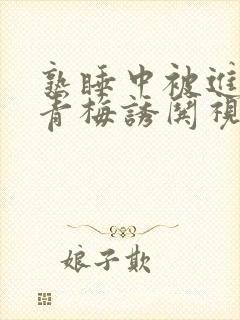 熟睡中被進
青梅誘鬨視
娘子欺